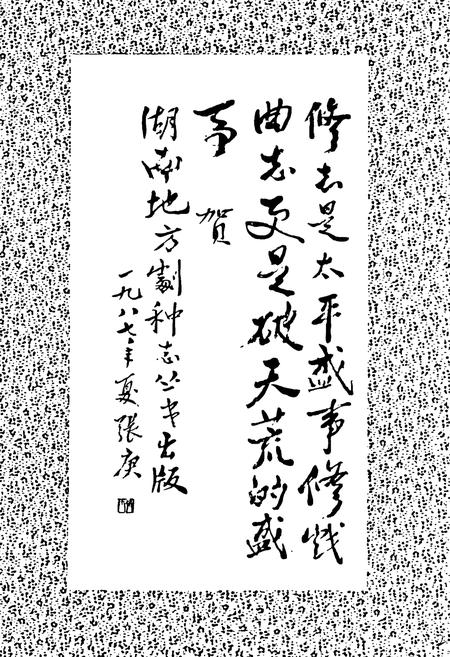 修志是太平盛事修戏
曲志更是破天荒的盛
事
贺
湖南地方剧种志丛书出版
一九八七年夏张庚